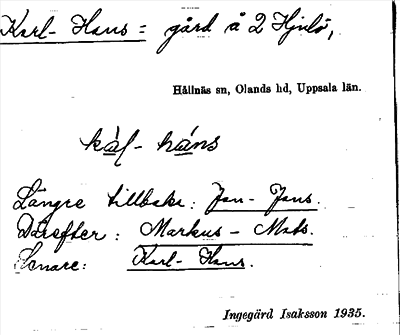 Karl-Hans = gård å 2 Hjälö,
Hållnäs sn, Olands hd, Uppsala län.
kàl-háns
Längre tillbaka: Jan-Jans.
Därefter: Markus-Mats.
Senare: Karl-Hans.
Ingegärd Isaksson 1935.